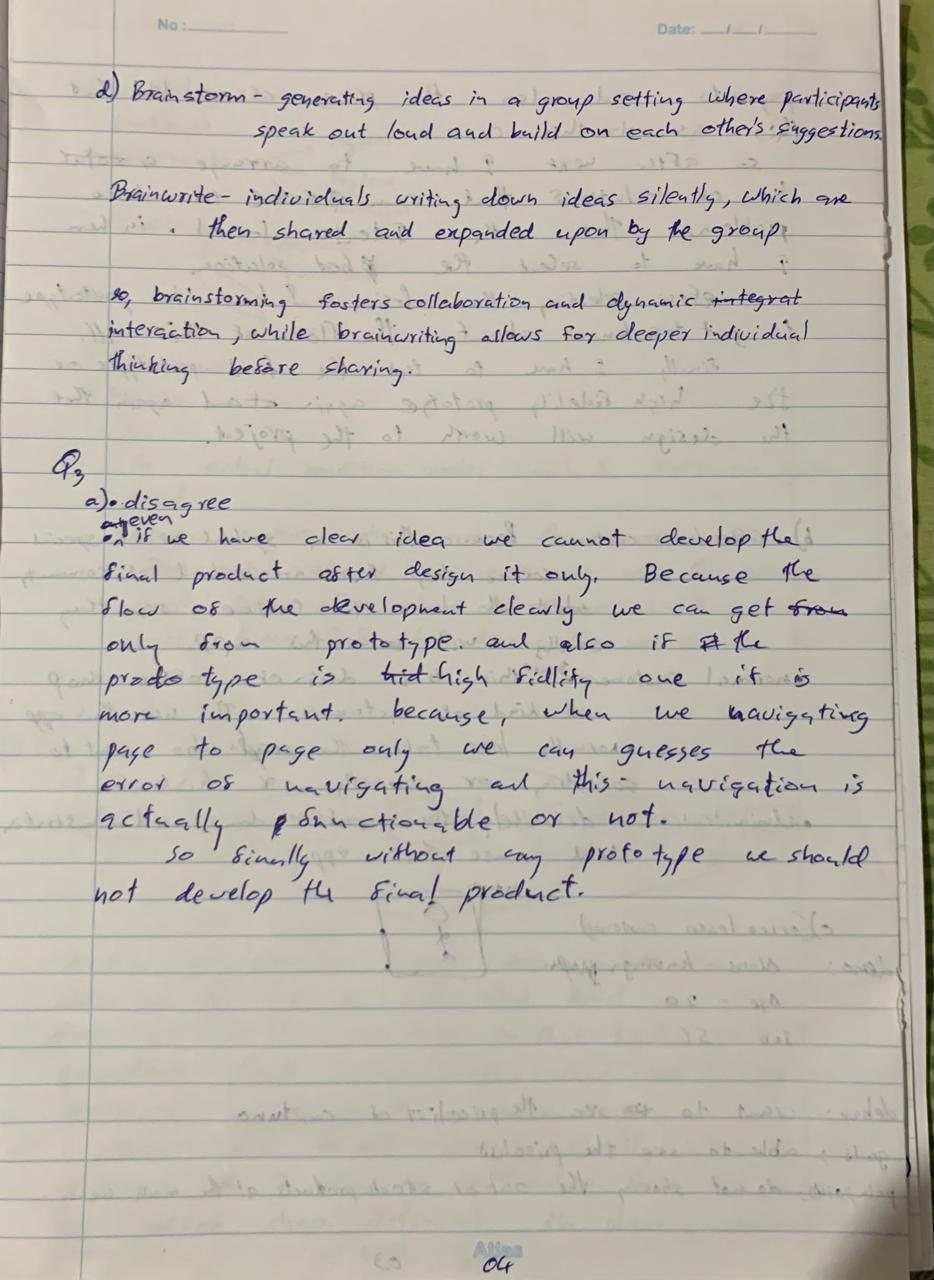 No: Date: __/__/__
d) Brainstorm - generating ideas in a group setting where participants
speak out loud and build on each other's suggestions.
Brainwrite - individuals writing down ideas silently, which are
then shared and expanded upon by the group;
so, brainstorming fosters collaboration and dynamic integrat
interaction, while brainwriting allows for deeper individual
thinking before sharing.
Q3
a) • disagree
even
if we have clear idea we cannot develop the
final product after design it only. Because the
flow of the development clearly we can get from
only from prototype. and also if the
prodo type is hid high fidlity one it is
more important. because, when we navigating
page to page only we can guesses the
error of navigating and this navigation is
actually functionable or not.
so finally without any prototype we should
not develop the final product.
Atlas
04